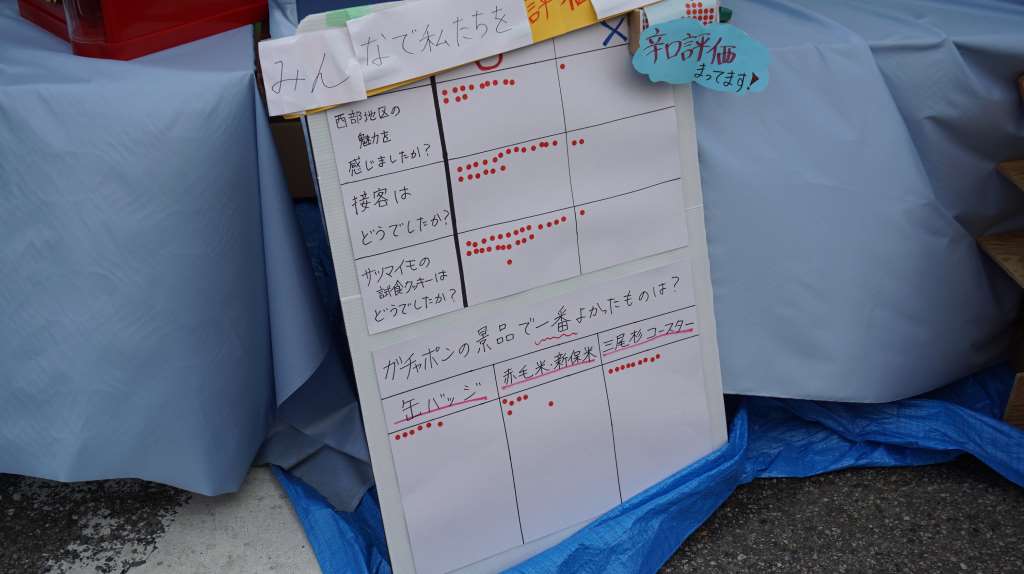 みんなで私たちを評価
辛口評価
まってます!
○ ×
西部地区の
魅力を
感じましたか?
接客は
どうでしたか?
サツマイモの
試食クッキーは
どうでしたか?
ガチャポンの景品で一番よかったものは?
缶バッジ
赤毛米・新保米
三尾杉コースター